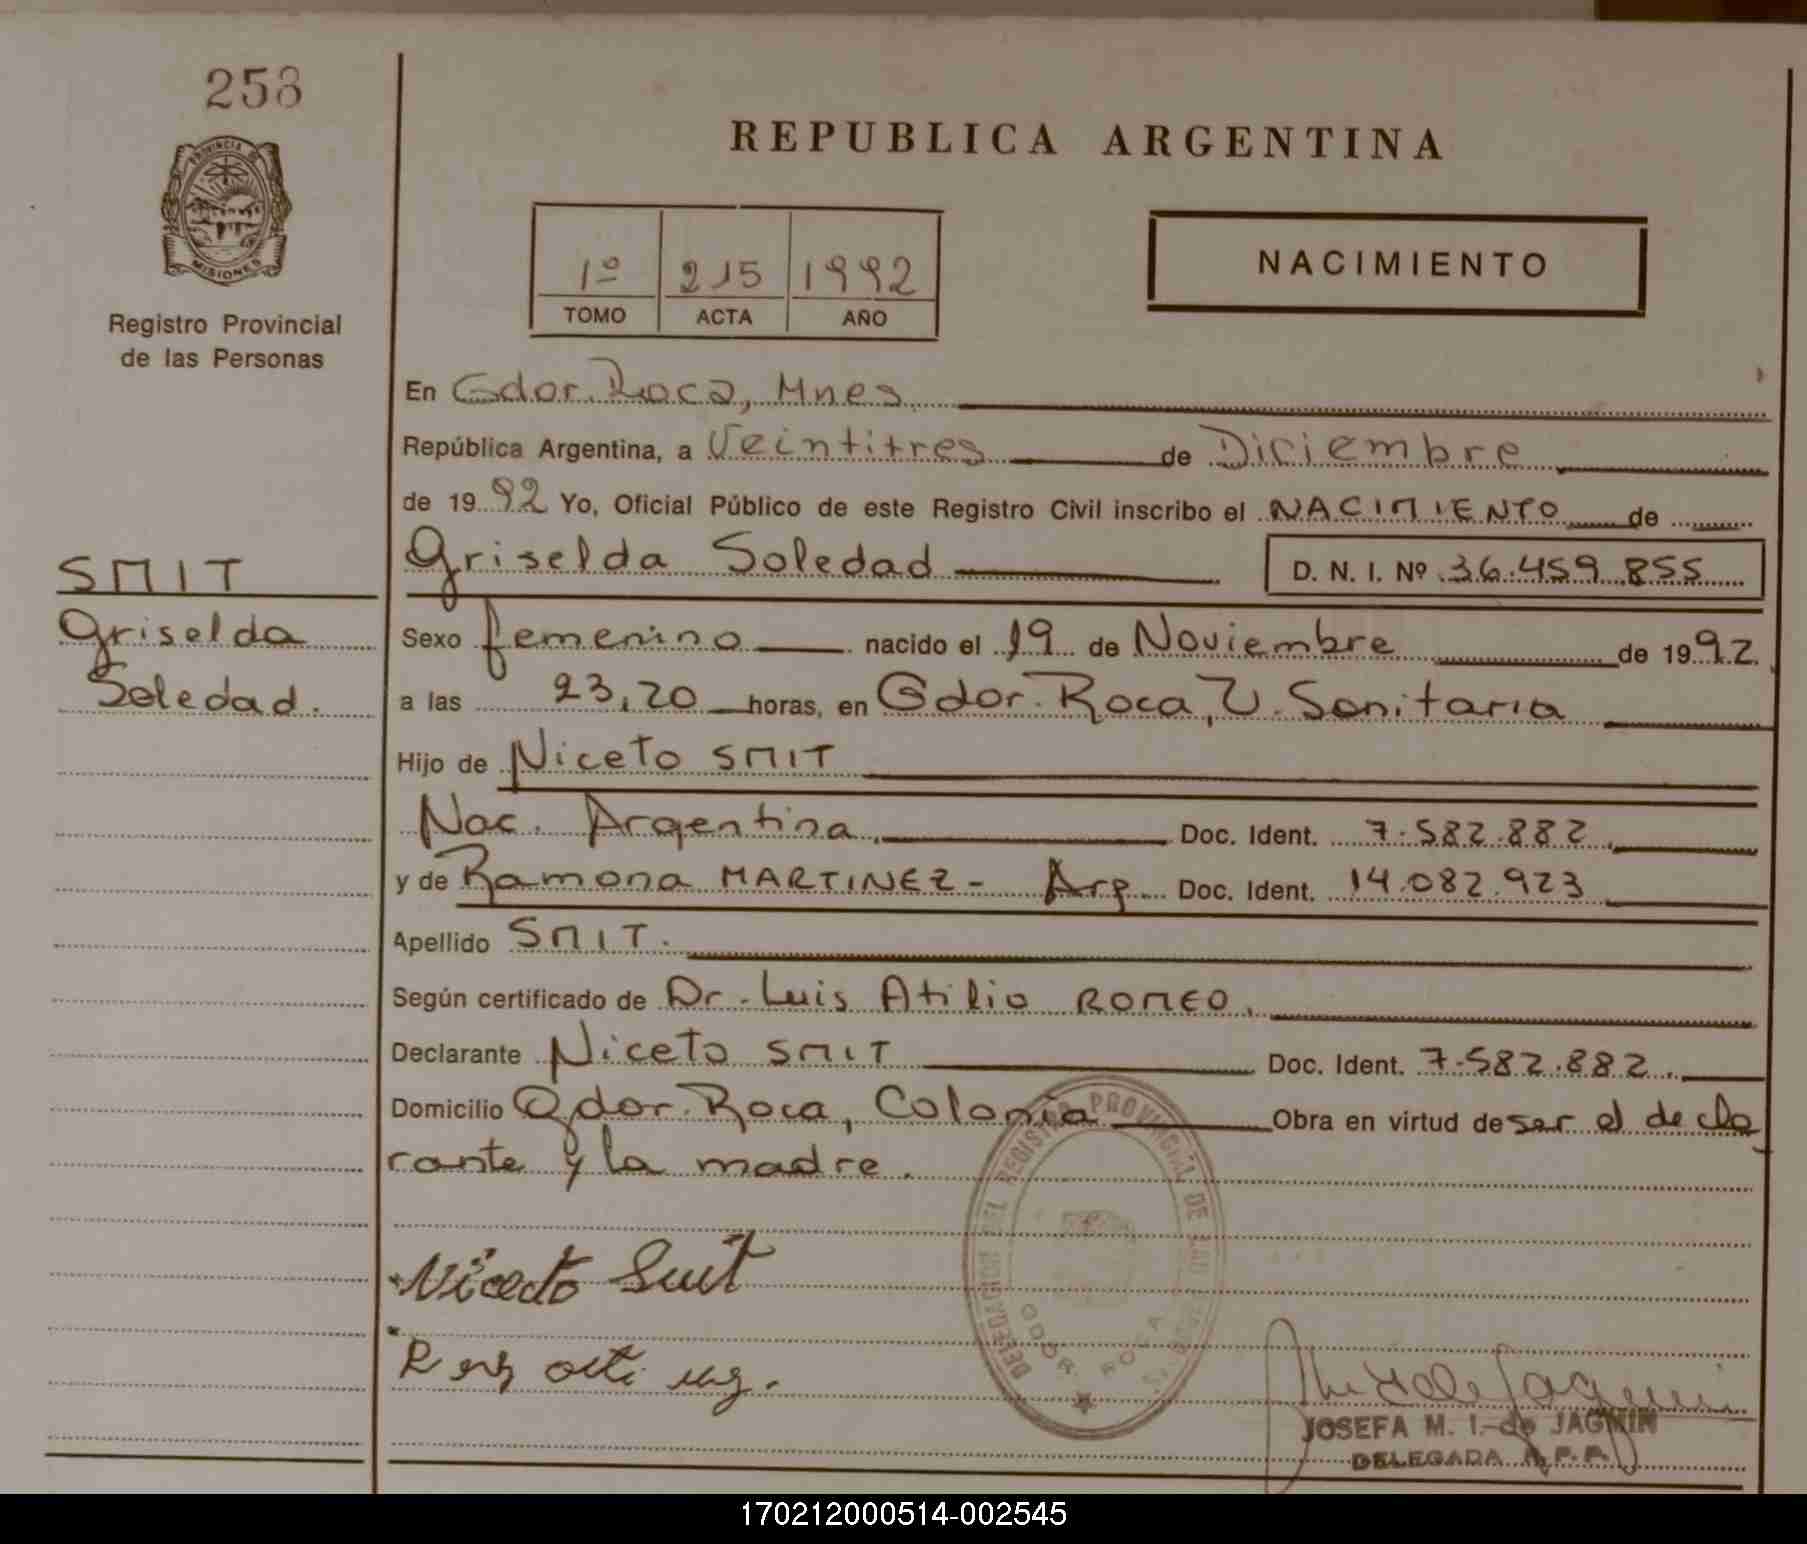 258
PROVINCIA DE
MISIONES
Registro Provincial
de las Personas
REPUBLICA ARGENTINA
1º 215 1992
TOMO ACTA AÑO
NACIMIENTO
En Gdor. Roca, Mnes.
República Argentina, a Veintitres de Diciembre
de 1992 Yo, Oficial Público de este Registro Civil inscribo el NACIMIENTO de
SMIT
Griselda
Soledad.
Griselda Soledad D. N. I. Nº 36.459.855
Sexo femenino nacido el 19 de Noviembre de 1992.
a las 23,20 horas, en Gdor. Roca, U. Sanitaria
Hijo de Niceto SMIT
Nac. Argentina. Doc. Ident. 7.582.882
y de Ramona MARTINEZ - Arg. Doc. Ident. 14.082.923
Apellido SMIT.
Según certificado de Dr. Luis Atilio ROMEO.
Declarante Niceto SMIT Doc. Ident. 7.582.882.
Domicilio Gdor. Roca, Colonia Obra en virtud de ser el decla
rante y la madre.
DELEGACION DEL REGISTRO PROVINCIAL DE LAS
GDOR. ROCA
Niceto Smit
JOSEFA M. I. de JAGMIN
DELEGADA R.P.P.
170212000514-002545